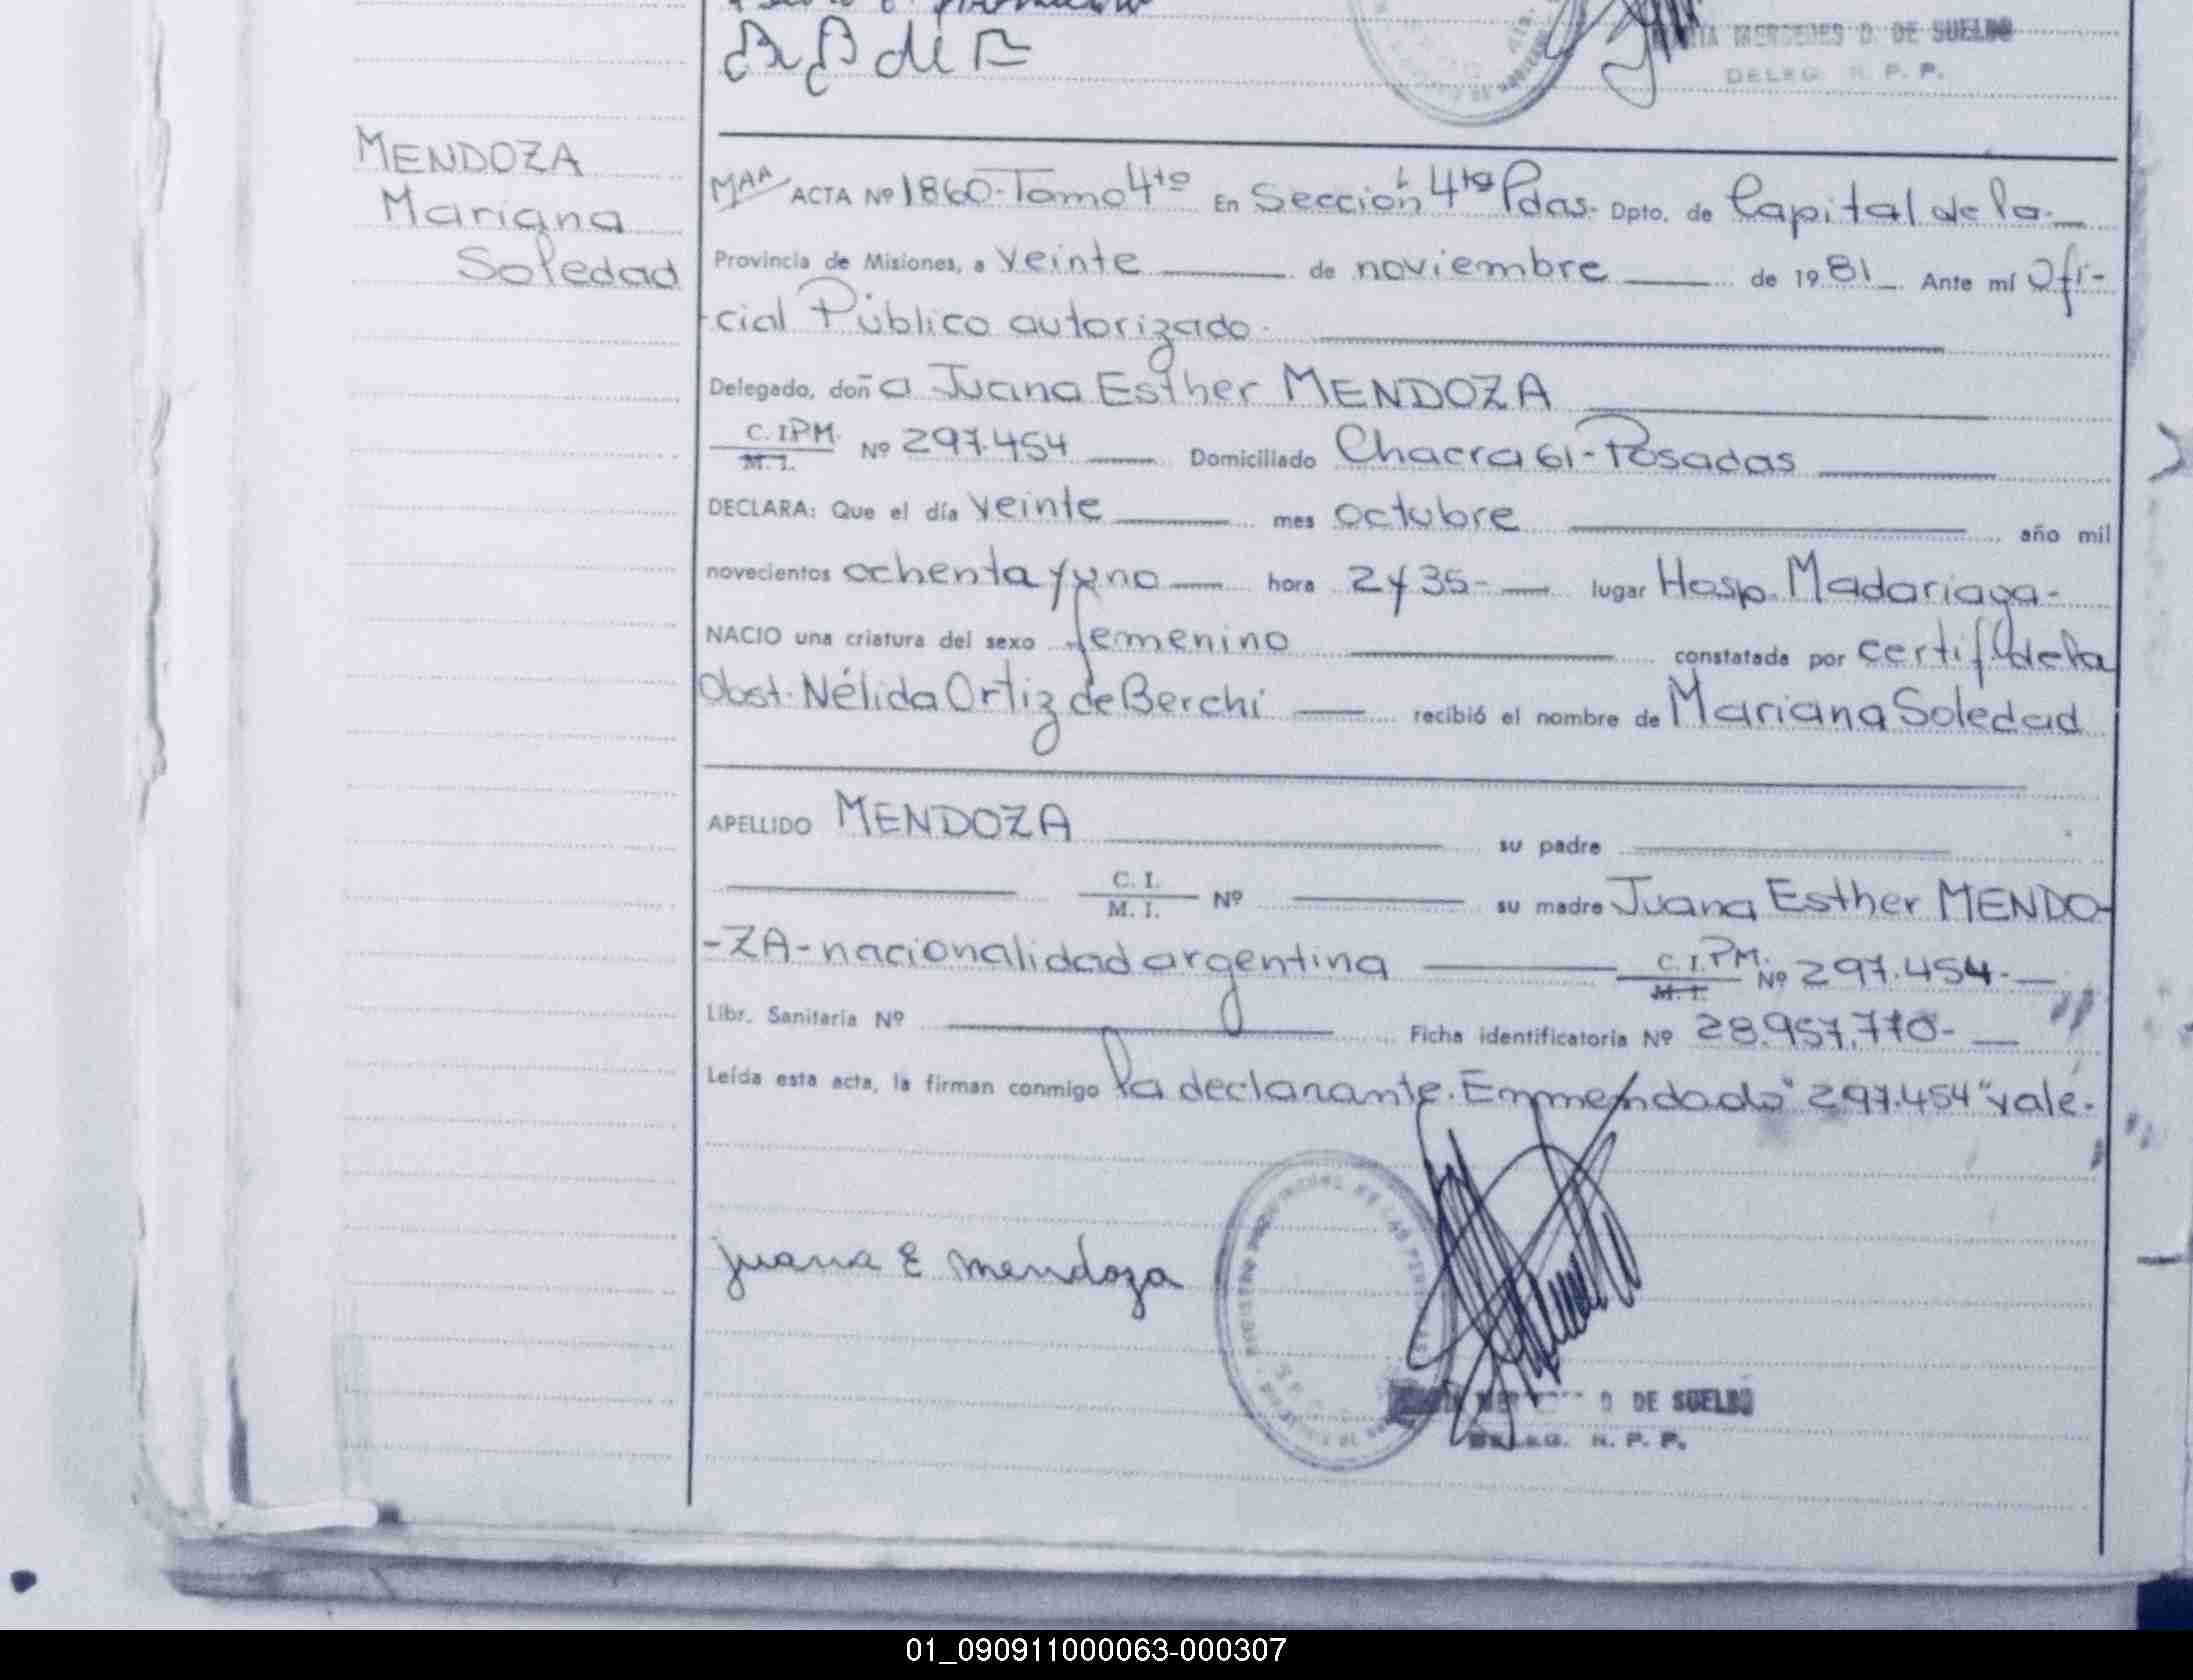 MARIA MERCEDES D. DE SUELDO
DELEG. R. P. P.
MENDOZA
Mariana
Soledad
MAA ACTA Nº 1860-Tomo 4to En Sección 4ta Pdas. Dpto. de Capital de la
Provincia de Misiones, a veinte de noviembre de 1981 Ante mí Ofi-
cial Público autorizado.
Delegado, doña Juana Esther MENDOZA
C. I.P.M. Nº 297.454 Domiciliado Chacra 61-Posadas
M. I.
DECLARA: Que el día veinte mes octubre año mil
novecientos ochenta y uno hora 2 y 35- lugar Hosp. Madariaga-
NACIO una criatura del sexo femenino constatada por certif. de la
Obst. Nélida Ortiz de Berchi recibió el nombre de Mariana Soledad
APELLIDO MENDOZA su padre
C. I.
M. I. Nº su madre Juana Esther MENDO-
-ZA-nacionalidad argentina C. I.P.M. Nº 297.454-
M. I.
Libr. Sanitaria Nº Ficha identificatoria Nº 28.957.770-
Leída esta acta, la firman conmigo la declarante. Enmendado "297.454" vale.
juana E mendoza
D DE SUELDO
DELEG. R. P. P.
01_090911000063-000307